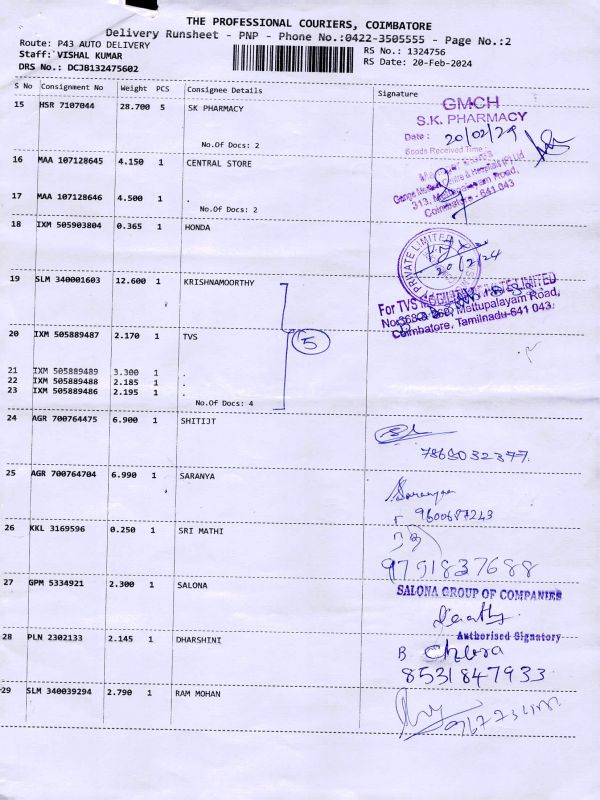 THE PROFESSIONAL COURIERS, COIMBATORE
Delivery Runsheet - PNP - Phone No.:0422-3505555 - Page No.:2
Route: P43 AUTO DELIVERY
Staff: VISHAL KUMAR
DRS No.: DCJB132475602
RS No.: 1324756
RS Date: 20-Feb-2024
S No Consignment No Weight PCS Consignee Details Signature
15 HSR 7107044 28.700 5 SK PHARMACY
No.Of Docs: 2
GMCH
S.K. PHARMACY
Date: 20/02/24
Goods Received Time
16 MAA 107128645 4.150 1 CENTRAL STORE
17 MAA 107128646 4.500 1 .
No.Of Docs: 2
313, Mettupalayam Road,
Coimbatore - 641 043
18 IXM 505903804 0.365 1 HONDA
PRIVATE LIMITED
20/2/24
19 SLM 340001603 12.600 1 KRISHNAMOORTHY
For TVS LIMITED
Mettupalayam Road,
Coimbatore, Tamilnadu-641 043.
20 IXM 505889487 2.170 1 TVS
5
21 IXM 505889489 3.300 1 .
22 IXM 505889488 2.185 1 .
23 IXM 505889486 2.195 1 .
No.Of Docs: 4
24 AGR 700764475 6.900 1 SHITIJT
7868032377
25 AGR 700764704 6.990 1 SARANYA
Saranya
9600687243
26 KKL 3169596 0.250 1 SRI MATHI
9791837688
27 GPM 5334921 2.300 1 SALONA
SALONA GROUP OF COMPANIES
Authorised Signatory
28 PLN 2302133 2.145 1 DHARSHINI
8531847933
29 SLM 340039294 2.790 1 RAM MOHAN